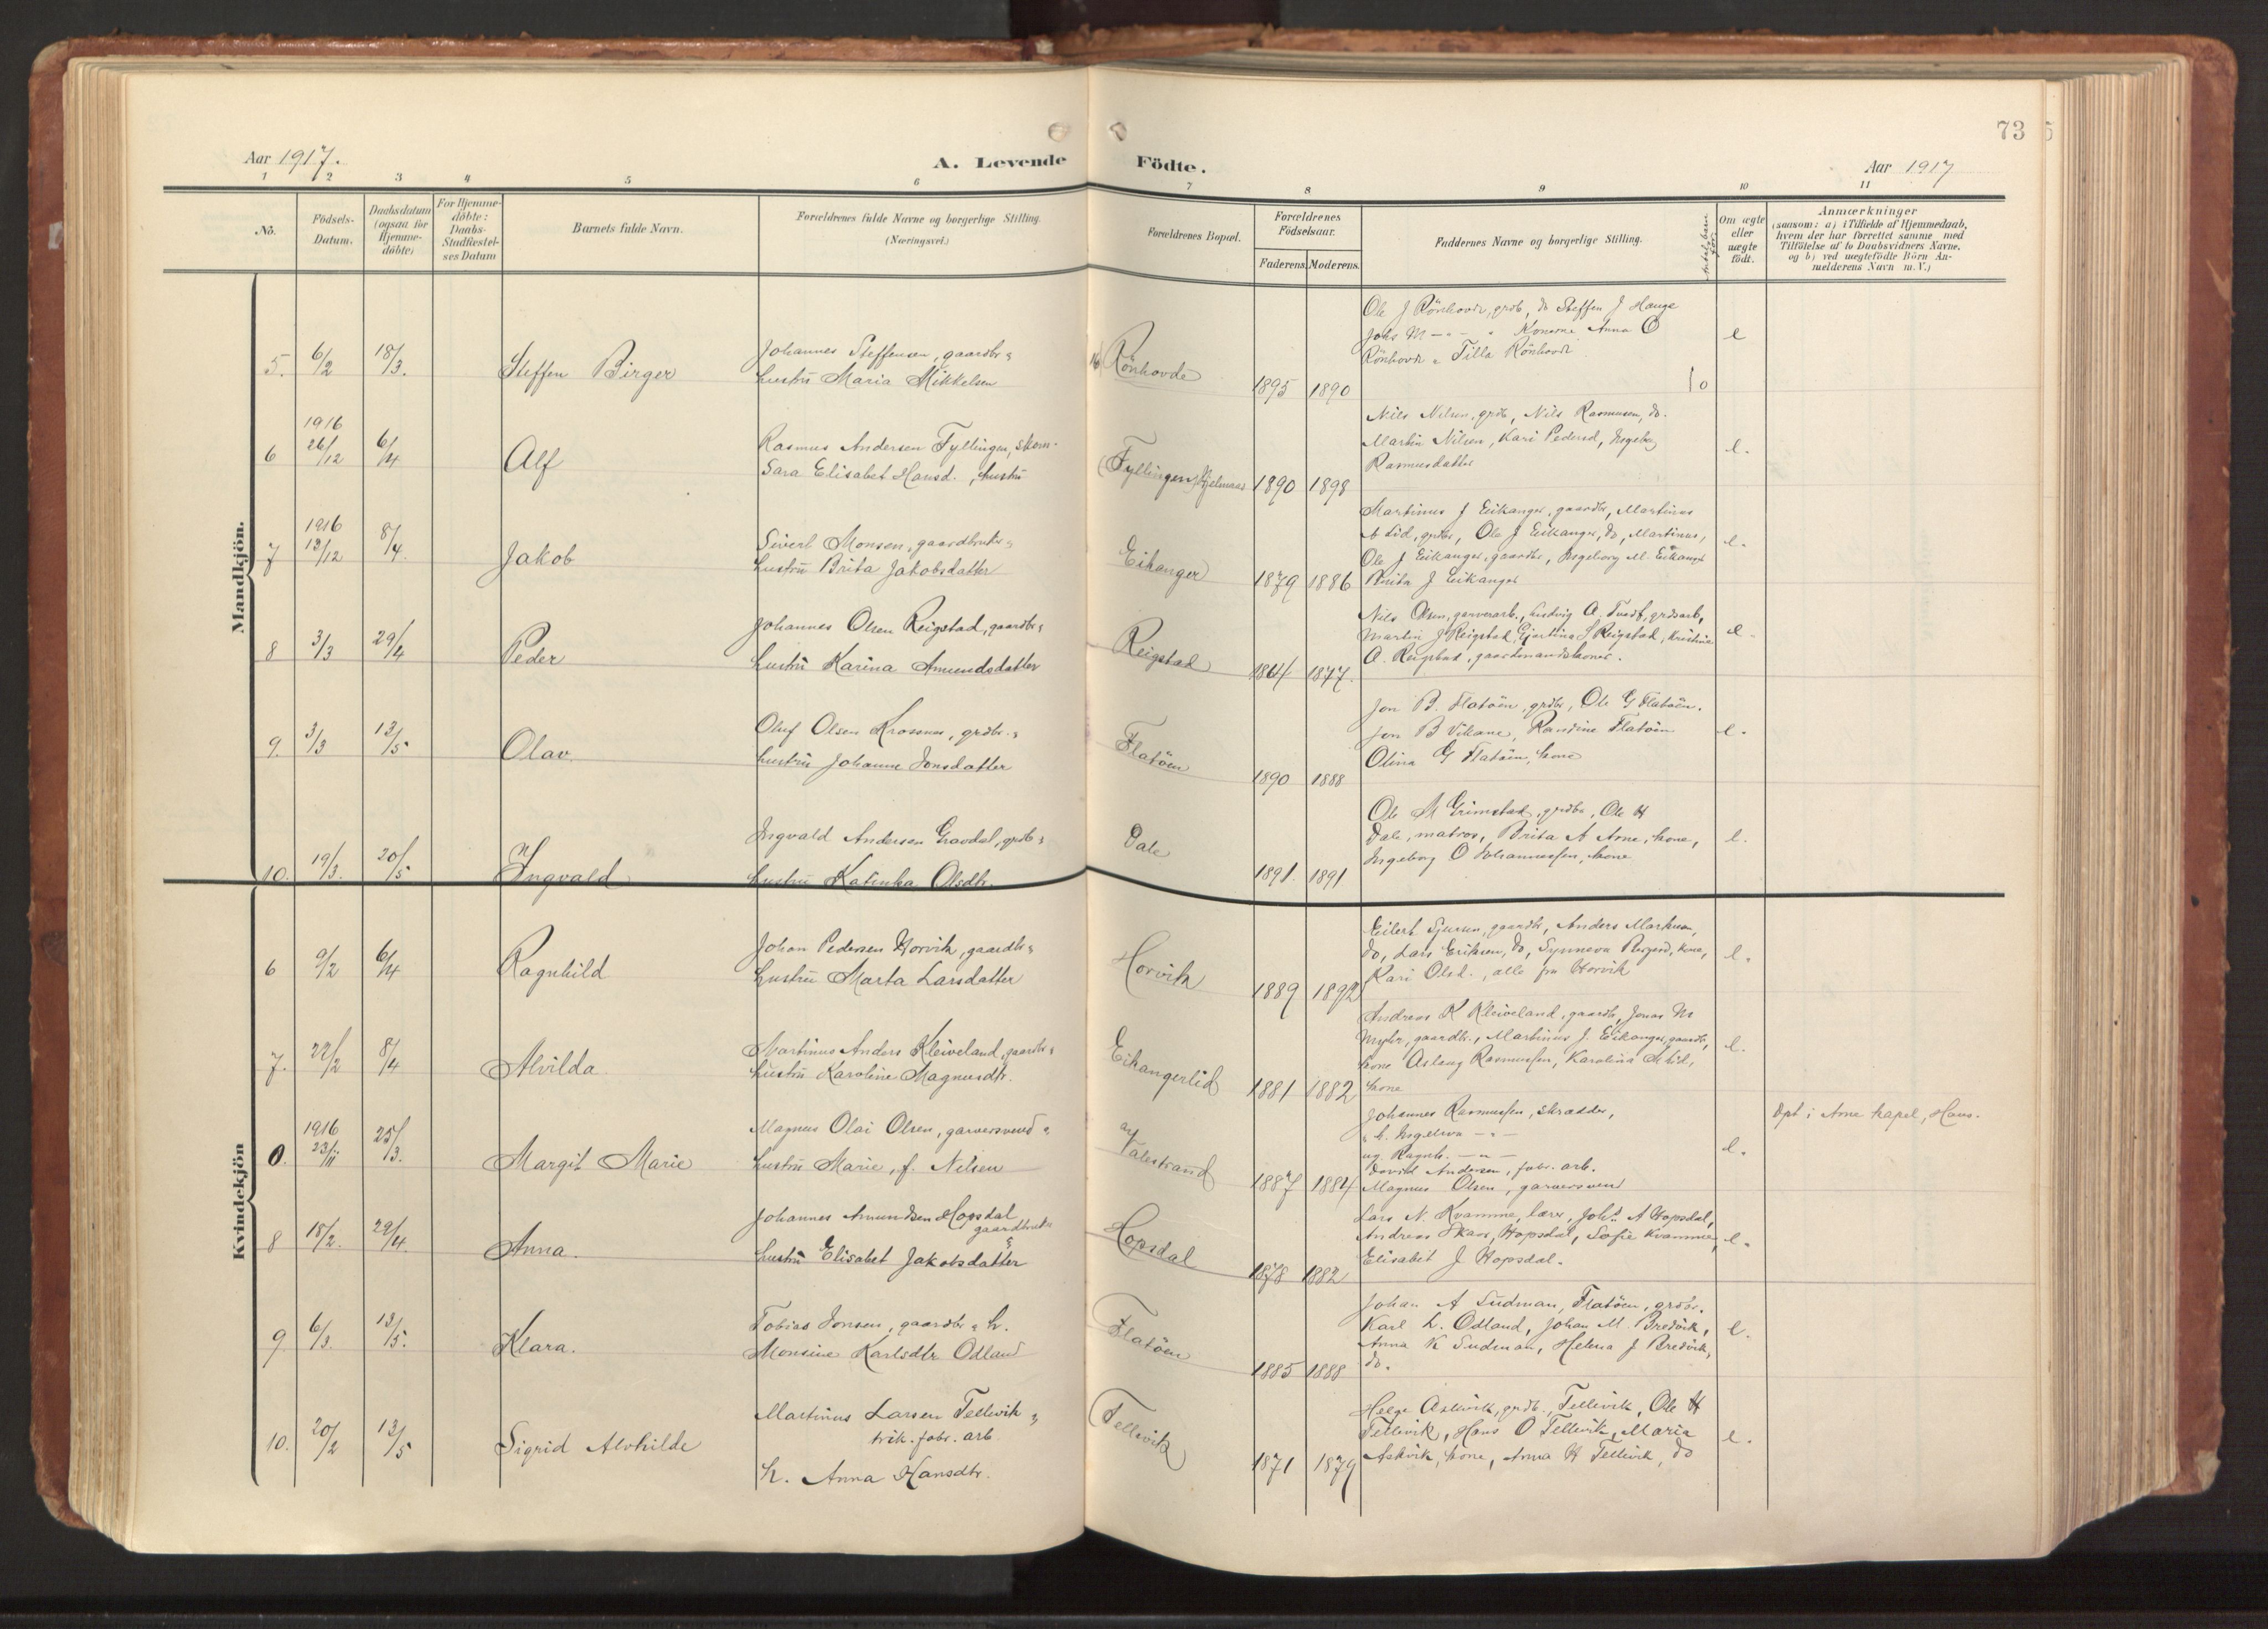 73
Aar 1917.
A. Levende Födte.
Aar 1917
1 2 3 4 5 6 7 8 9 10 11
No.
Födsels-Datum.
Daabsdatum (ogsaa for Hjemme-döbte)
For Hjemme-döbte: Daabs-Stadfæstel-ses Datum
Barnets fulde Navn.
Forældrenes fulde Navne og borgerlige Stilling.
(Næringsvei.)
Forældrenes Bopæl.
Forældrenes Födselsaar.
Faderens. Moderens.
Faddernes Navne og borgerlige Stilling.
Om ægte eller uægte födt.
Anmærkninger
(saasom: a) i Tilfælde af Hjemmedaab,
hvem der har forrettet samme med
Tilföielse af to Daabsvidners Navne,
og b) ved uægtefödte Börn An-
melderens Navn m. V.)
Mandkjön.
5. 6/2 18/3. Steffen Birger
Johannes Steffensen, gaardbr
hustru Maria Mikkelsen
Rönhovde
1895 1890
Ole J Rönhovde, grdb, do Steffen J Hauge
Johs M Konerne Anna O
Rönhovde Tilla Rönhovde
e
6 1916 26/12 6/4 Alf
Rasmus Andersen Fyllingen, skom.
Sara Elisabet Hansd., hustru
Fyllingen, Hjelmaas
1890 1898
Nils Nilsen, grdbr, Nils Rasmusen, do.
Martin Nilsen, Kari Pedersd, Ingeborg
Rasmusdatter
e.
7 1916 13/12 8/4. Jakob
Sivert Monsen, gaardbruker
hustru Brita Jakobsdatter
Eikanger
1879 1886
Martinus J Eikanger, gaardbr, Martinus
A Lid, grdbr, Ole J Eikanger, do, Martinus,
Ole J Eikanger, gaardbr, Ingeborg M Eikanger
Brita J Eikanger
e.
8 3/3 29/4 Peder
Johannes Olsen Reigstad, gaardbr
hustru Karina Amundsdatter
Reigstad
1864 1877.
Nils Olsen, garverarb., Ludvig O. Tvedt, grdsarb,
Martin J Reigstad, Gjertina S Reigstad, Kristine
O. Reigstad, gaardmandskoner.
e.
9. 3/3 13/5 Olav
Oluf Olsen Krossnes, grdbr.
hustru Johanne Jonsdatter
Flatöen
1890 1888
Jon B. Flatöen, grdbr, Ole G Flatöen.
Jon B Villane, Randine Flatöen
Olina G Flatöen, kone
e.
10. 19/3. 20/5 Ingvald
Ingvald Andersen Gravdal, grdb
hustru Katinka Olsdtr.
Dale
1891. 1891
Ole M Grimstad, grdbr, Ole H
Dale, matros, Brita A Arne, kone,
Ingeborg O Johannessen, kone
e.
Kvindekjön
6 9/2 6/4 Ragnhild
Johan Pedersen Horvik, gaardbr
hustru Marta Larsdatter
Horvik
1889 1892
Eilert Sjursen, gaardbr, Anders Markusen,
do, Lars Eriksen, do, Synneva, kone,
Kari Olsd., alle fra Horvik
e.
7. 22/2 8/4 Alvilda
Martinus Anders Kleiveland, gaardbr
hustru Karoline Magnusdtr.
Eikangerlid
1881 1882
Andreas K Kleiveland, gaardbr, Jonas M
Myhr, gaardbr., Martinus J. Eikanger, gaardbr,
kone Aslaug Rasmussen, Karolina A Lid,
kone
e.
0. 1916 23/11 25/3. Margit Marie
Magnus Olai Olsen, garversvend
hustru Marie, f. Nilsen
Valestrand
1887 1884
Johannes Rasmussen, skrædder,
h. Ingeborg
ug. Ragnh.
David Andersen, fabr. arb.
Magnus Olsen, garversvend
e.
Dpt i Arne kapel, Haus.
8 18/2. 29/4. Anna.
Johannes Amundsen Hopsdal
gaardbruk
hustru Elisabet Jakobsdatter
Hopsdal
1878 1882
Lars N. Kvamme, lærer, Johs. A Hopsdal,
Andreas Skaar, Hopsdal, Sofie Kvamme,
Elisabet J Hopsdal.
e.
9 6/3. 13/5. Klara.
Tobias Jonsen, gaardbr h.
Monsine Karlsdtr Odland
Flatöen
1885 1888
Johan A Sudman, Flatöen, grdbr.
Karl L. Odland, Johan M. Bredvik,
Anna K Sudman, Helena J Bredvik,
do.
e.
10. 20/2 13/5 Sigrid Alvhilde
Martinus Larsen Tellevik
trik. fabr. arb
h. Anna Hansdtr.
Tellevik
1871 1879
Helge Askvik, grdb., Tellevik, Ole H
Tellevik, Hans O Tellevik, Maria
Askvik, kone, Anna H Tellevik, do
e.